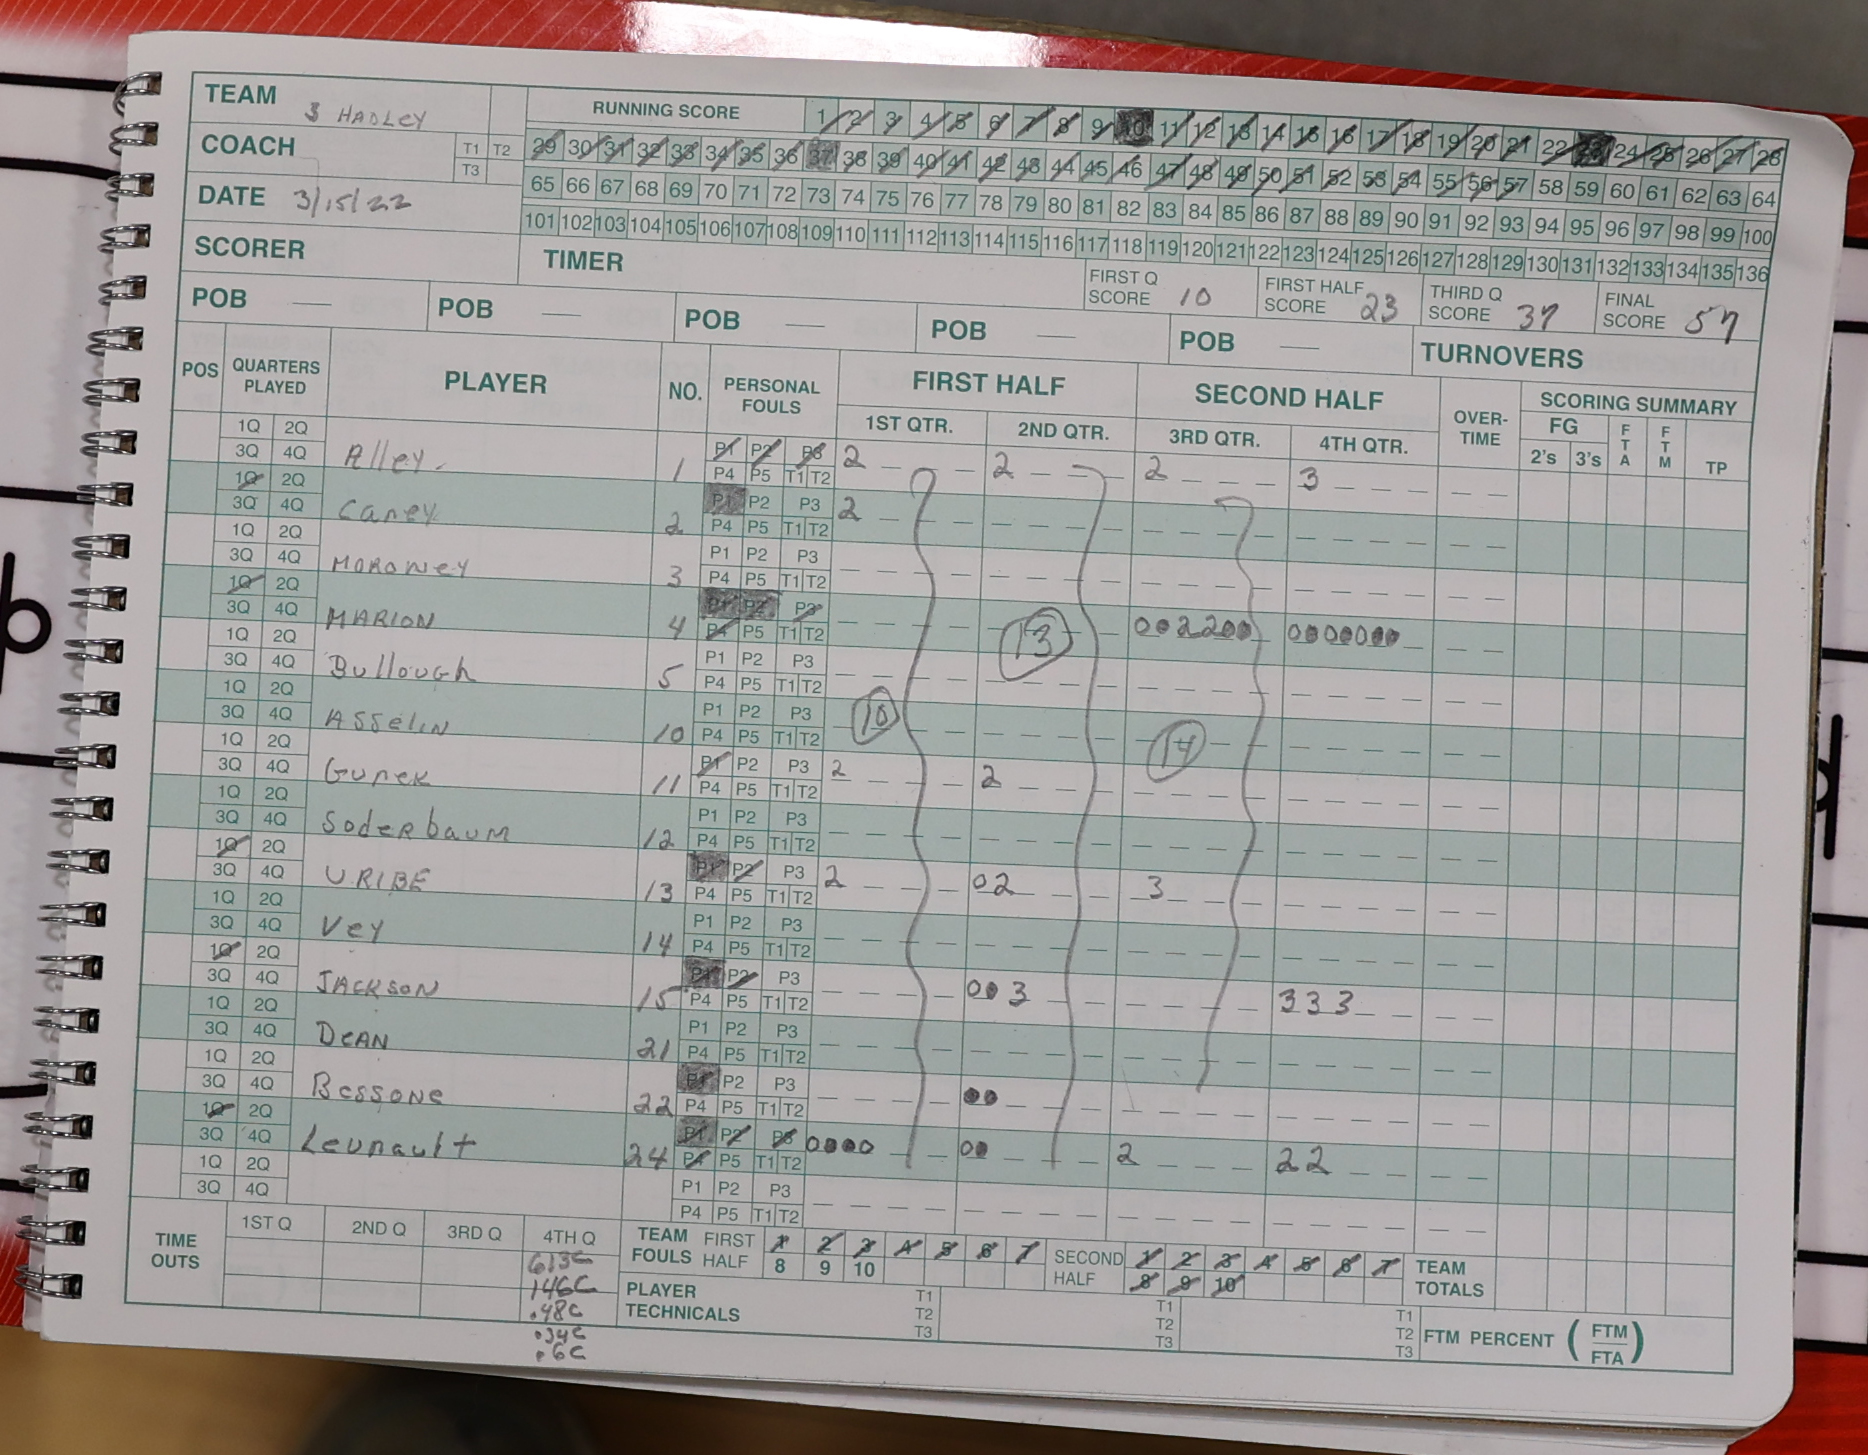 TEAM S HADLEY
RUNNING SCORE 1 2 3 4 5 6 7 8 9 10 11 12 13 14 15 16 17 18 19 20 21 22 23 24 25 26 27 28
COACH T1 T2 T3
29 30 31 32 33 34 35 36 37 38 39 40 41 42 43 44 45 46 47 48 49 50 51 52 53 54 55 56 57 58 59 60 61 62 63 64
DATE 3/15/22
65 66 67 68 69 70 71 72 73 74 75 76 77 78 79 80 81 82 83 84 85 86 87 88 89 90 91 92 93 94 95 96 97 98 99 100
101 102 103 104 105 106 107 108 109 110 111 112 113 114 115 116 117 118 119 120 121 122 123 124 125 126 127 128 129 130 131 132 133 134 135 136
SCORER
TIMER
FIRST Q SCORE 10
FIRST HALF SCORE 23
THIRD Q SCORE 37
FINAL SCORE 57
POB — POB — POB — POB — POB — TURNOVERS
POS QUARTERS PLAYED PLAYER NO. PERSONAL FOULS FIRST HALF SECOND HALF OVER-TIME SCORING SUMMARY
1ST QTR. 2ND QTR. 3RD QTR. 4TH QTR. FG 2's 3's FTA FTM TP
1Q 2Q 3Q 4Q Alley 1 P1 P2 P3 P4 P5 T1 T2 2 2 2 3
1Q 2Q 3Q 4Q Caney 2 P1 P2 P3 P4 P5 T1 T2 2
1Q 2Q 3Q 4Q MORONEY 3 P1 P2 P3 P4 P5 T1 T2
1Q 2Q 3Q 4Q MARION 4 P1 P2 P3 P4 P5 T1 T2 13 002200 0000000
1Q 2Q 3Q 4Q Bullough 5 P1 P2 P3 P4 P5 T1 T2
1Q 2Q 3Q 4Q ASSELIN 10 P1 P2 P3 P4 P5 T1 T2 10 14
1Q 2Q 3Q 4Q Gunek 11 P1 P2 P3 P4 P5 T1 T2 2 2
1Q 2Q 3Q 4Q Soderbaum 12 P1 P2 P3 P4 P5 T1 T2
1Q 2Q 3Q 4Q URIBE 13 P1 P2 P3 P4 P5 T1 T2 2 02 3
1Q 2Q 3Q 4Q Vey 14 P1 P2 P3 P4 P5 T1 T2
1Q 2Q 3Q 4Q JACKSON 15 P1 P2 P3 P4 P5 T1 T2 003 333
1Q 2Q 3Q 4Q DEAN 21 P1 P2 P3 P4 P5 T1 T2
1Q 2Q 3Q 4Q Bessone 22 P1 P2 P3 P4 P5 T1 T2 00
1Q 2Q 3Q 4Q Leunault 24 P1 P2 P3 P4 P5 T1 T2 0000 00 2 22
1Q 2Q 3Q 4Q P1 P2 P3 P4 P5 T1 T2
TIME OUTS 1ST Q 2ND Q 3RD Q 4TH Q
613C
146C
.48C
.34C
.6C
TEAM FOULS FIRST HALF 1 2 3 4 5 6 7 8 9 10
SECOND HALF 1 2 3 4 5 6 7 8 9 10
TEAM TOTALS
PLAYER TECHNICALS T1 T2 T3 T1 T2 T3 T1 T2 T3
FTM PERCENT (FTM/FTA)